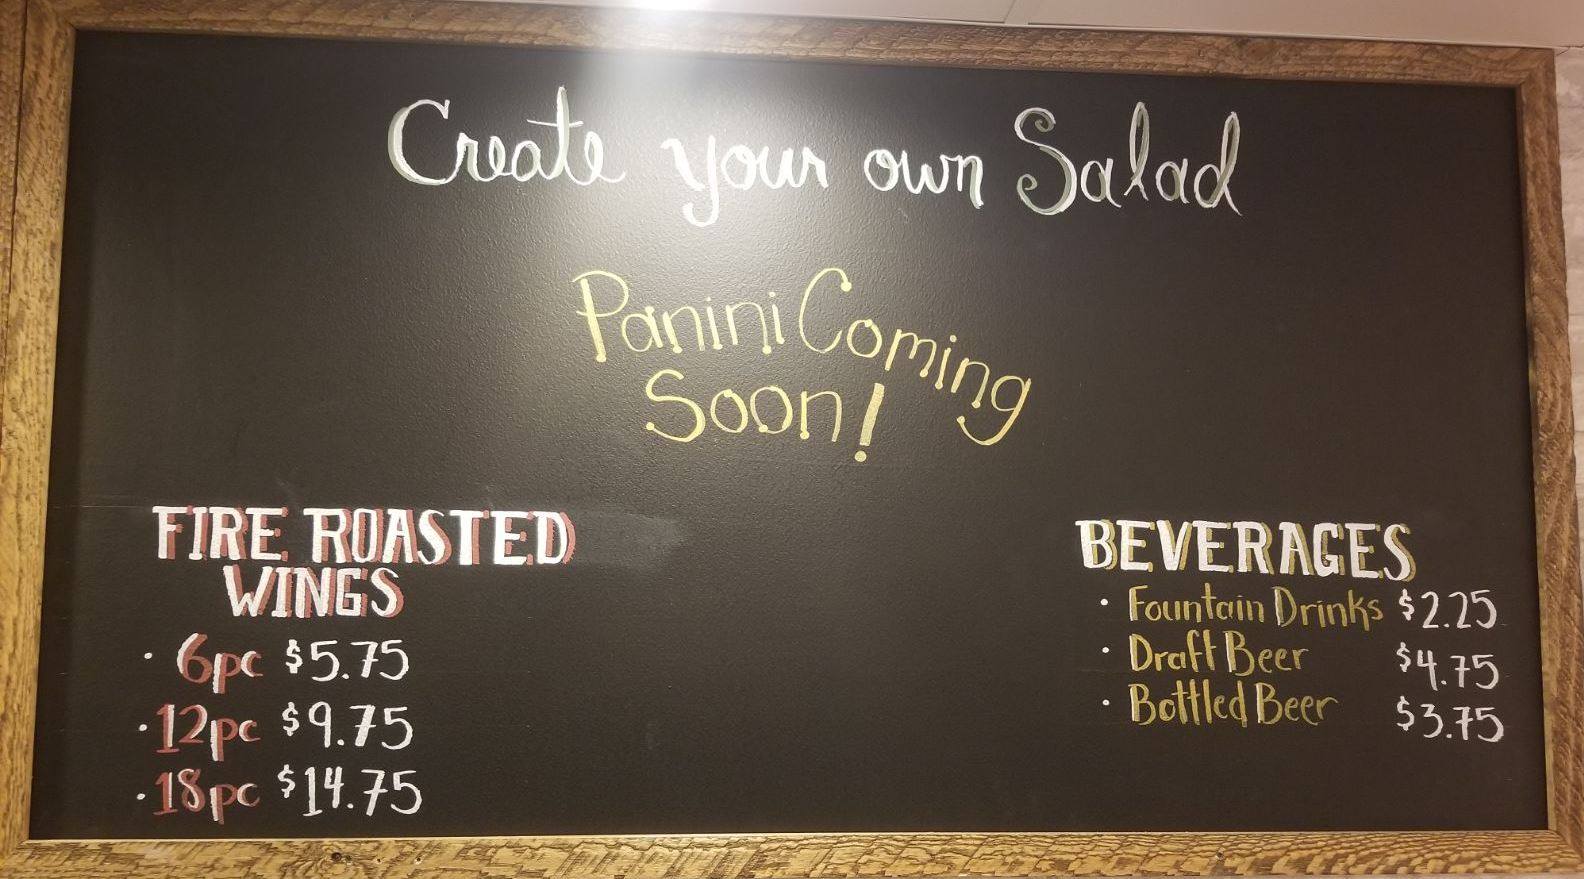 Create your own Salad
Panini Coming
Soon!
FIRE ROASTED
WINGS
· 6pc $5.75
· 12pc $9.75
· 18pc $14.75
BEVERAGES
· Fountain Drinks $2.25
· Draft Beer $4.75
· Bottled Beer $3.75